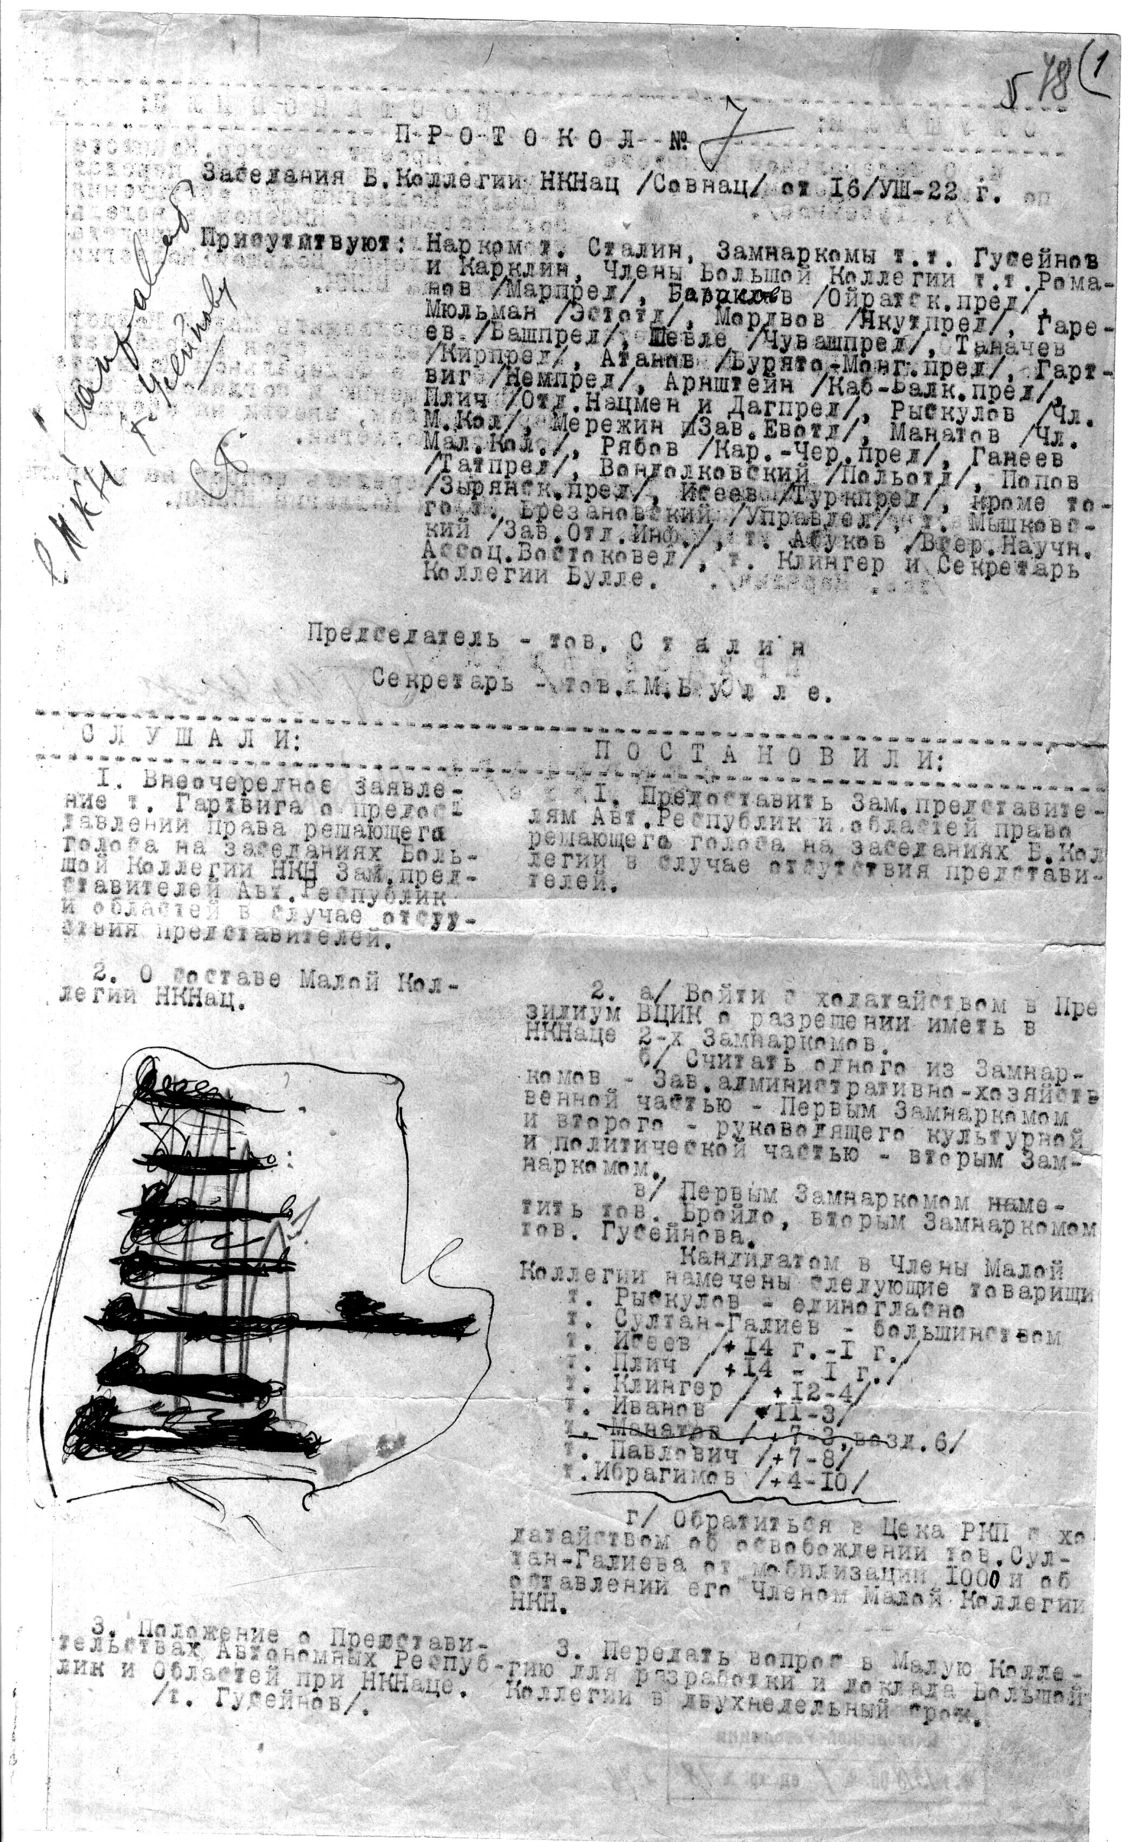 5 78 (1
П-Р-О-Т-О-К-О-Л № 7
Заседания Б.Коллегии НКНац /Совнац/ от 16/УШ-22 г.
Присутствуют: Нарком т. Сталин, Замнаркомы т.т. Гусейнов
и Карклин, Члены Большой Коллегии т.т. Рома-
нов /Марпред/, /Ойратск.пред/,
Мюльман /Эстотд/, Мордвов /Якутпред/, Гаре-
ев /Башпред/, Шевле /Чувашпред/, Таначев
/Кирпред/, Атанов /Бурято-Монг.пред/, Гарт-
виг /Немпред/, Арнштейн /Каб-Балк.пред/,
Плич /Отд.Нацмен и Дагпред/, Рыскулов /Чл.
М.Кол/, Мережин /Зав.Евотд/, Манатов /Чл.
Мал.Кол./, Рябов /Кар.-Чер.пред/, Ганеев
/Татпред/, Вондолковский /Польотд/, Попов
/Зырянск.пред/, Исеев /Туркпред/, кроме то-
го т. Брезановский /Управдел/, т. Мышковс-
кий /Зав.Отд.Инф./, т. Абуков /Всер.Научн.
Ассоц.Востоковед/, т. Клингер и Секретарь
Коллегии Булле.
Председатель - тов. С т а л и н
Секретарь - тов. М.Б у л л е.
С Л У Ш А Л И:
1. Внеочередное заявле-
ние т. Гартвига о предос-
тавлении права решающего
голоса на заседаниях Боль-
шой Коллегии НКН Зам.пред-
ставителей Авт.Республик
и областей в случае отсут-
ствия представителей.
2. О составе Малой Кол-
легии НКНац.
3. Положение о Представи-
тельствах Автономных Респуб-
лик и Областей при НКНаце.
/т. Гусейнов/.
П О С Т А Н О В И Л И:
1. Предоставить Зам.представите-
лям Авт.Республик и областей право
решающего голоса на заседаниях Б.Кол
легии в случае отсутствия представи-
телей.
2. а/ Войти с ходатайством в Пре
зидиум ВЦИК о разрешении иметь в
НКНаце 2-х Замнаркомов.
б/ Считать одного из Замнар-
комов - Зав.административно-хозяйств
венной частью - Первым Замнаркомом
и второго - руководящего культурной
и политической частью - вторым Зам-
наркомом.
в/ Первым Замнаркомом наме-
тить тов. Бройдо, вторым Замнаркомом
тов. Гусейнова.
Кандидатом в Члены Малой
Коллегии намечены следующие товарищи
т. Рыскулов - единогласно
т. Султан-Галиев - большинством
т. Исеев /+14 г.-1 г./
т. Плич /+14 - 1 г./
т. Клингер /+12-4/
т. Иванов /+11-3/
т. Манатов /+7-3,возд.6/
т. Павлович /+7-8/
т.Ибрагимов /+4-10/
г/ Обратиться в Цека РКП с хо
датайством об освобождении тов.Сул-
тан-Галиева от мобилизации 1000 и об
оставлении его Членом Малой Коллегии
НКН.
3. Передать вопрос в Малую Колле-
гию для разработки и доклада Большой
Коллегии в двухнедельный срок.